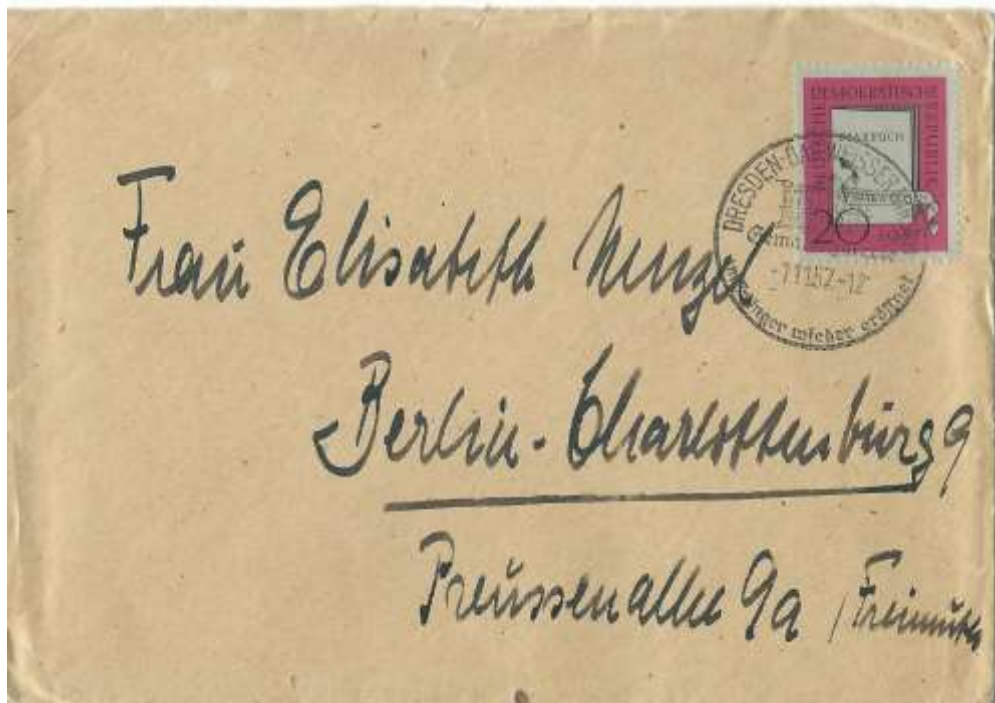 DEUTSCHE DEMOKRATISCHE REPUBLIK
TAGEBUCH
20
DRESDEN-BAD WEISSER
wieder eröffnet
Frau Elisabeth Menzel
Berlin-Charlottenburg 9
Preussenallee 9a / Freimuth